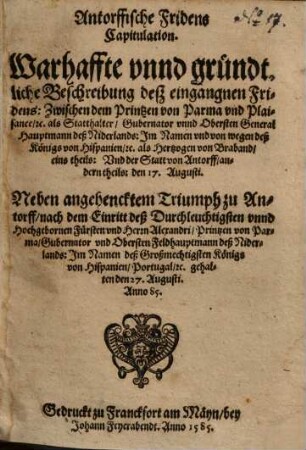 No 17.
Antorffische Fridens
Capitulation.
Warhaffte vnnd gründt,
liche Beschreibung deß eingangnen Fri,
dens: Zwischen dem Printzen von Parma vnd Plai,
sance/ꝛc. als Statthalter/ Gubernator vnnd Obersten General
Hauptmann deß Niderlands: Im Namen vnd von wegen deß
Königs von Hispanien/ꝛc. als Hertzogen von Braband/
eins theils: Vnd der Statt von Antorff/ an,
dern theils: den 17. Augusti.
Neben angehencktem Triumph zu An,
torff/ nach dem Einritt deß Durchleuchtigsten vnnd
Hochgebornen Fürsten vnd Herrn Alexandri/ Printzen von Par,
ma/ Gubernator vnd Obersten Feldhauptmann deß Nider,
lands: Im Namen deß Großmechtigsten Königs
von Hispanien/ Portugal/ꝛc. gehal,
ten den 27. Augusti.
Anno 85.
Gedruckt zu Franckfort am Mäyn/ bey
Johann Feyerabendt. Anno 1585.